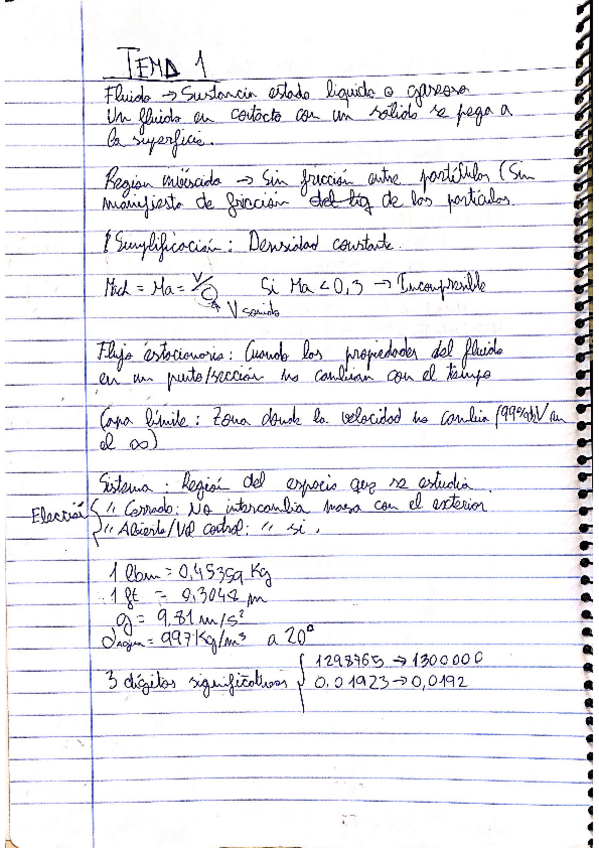 TEMA 1
Fluido → Sustancia estado líquido o gaseoso
Un fluido en contacto con un sólido se pega a
la superficie.
Región inviscida → Sin fricción entre partículas (Sin
manifiesto de fricción del liq de las partículas.
Simplificación: Densidad constante.
Mach = Ma = V/C Si Ma < 0,3 → Incompresible
V sonido
Flujo estacionario: Cuando las propiedades del fluido
en un punto/sección no cambian con el tiempo
Capa límite: Zona donde la velocidad no cambia (99% de V en
el ∞)
Sistema: Región del espacio que se estudia.
Elección { " Cerrado: No intercambia masa con el exterior
" Abierto/Vol control: " si.
1 lbm = 0,45359 Kg
1 ft = 0,3048 m
g = 9,81 m/s²
dagua = 997 Kg/m³ a 20°
3 dígitos significativos { 1298765 → 1300000
0.01923 → 0,0192